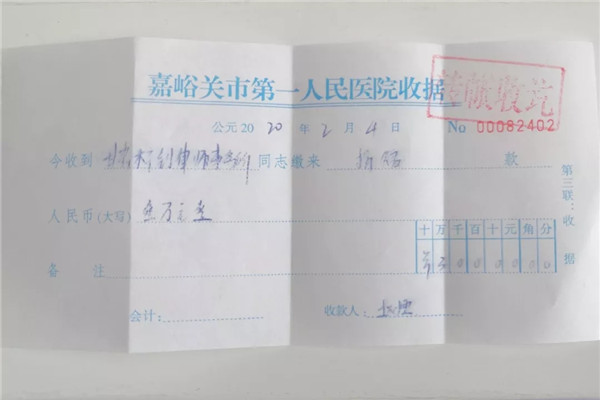 嘉峪关市第一人民医院收据
公元2020年2月4日 No 00082402
今收到 律师事务所 同志缴来 捐 款
人民币(大写) 万元整
十万千百十元角分
万000000
备注
会计: 收款人:
第三联:收据